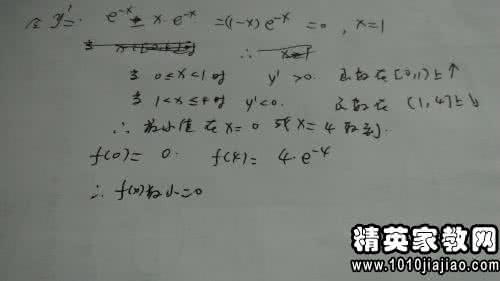 令 y'= e^{-x} - x·e^{-x} =(1-x)e^{-x} =0 , x=1
当 ∴ x=1
当 0≤x<1时 y'>0. 函数在[0,1)上↑
当 1<x≤4时 y'<0. 函数在 (1,4]上↓
∴ 最小值在 x=0 或 x=4 取到.
f(0)= 0. f(4)= 4·e^{-4}
∴ f(x)最小=0
精英家教网
www.1010jiajiao.com